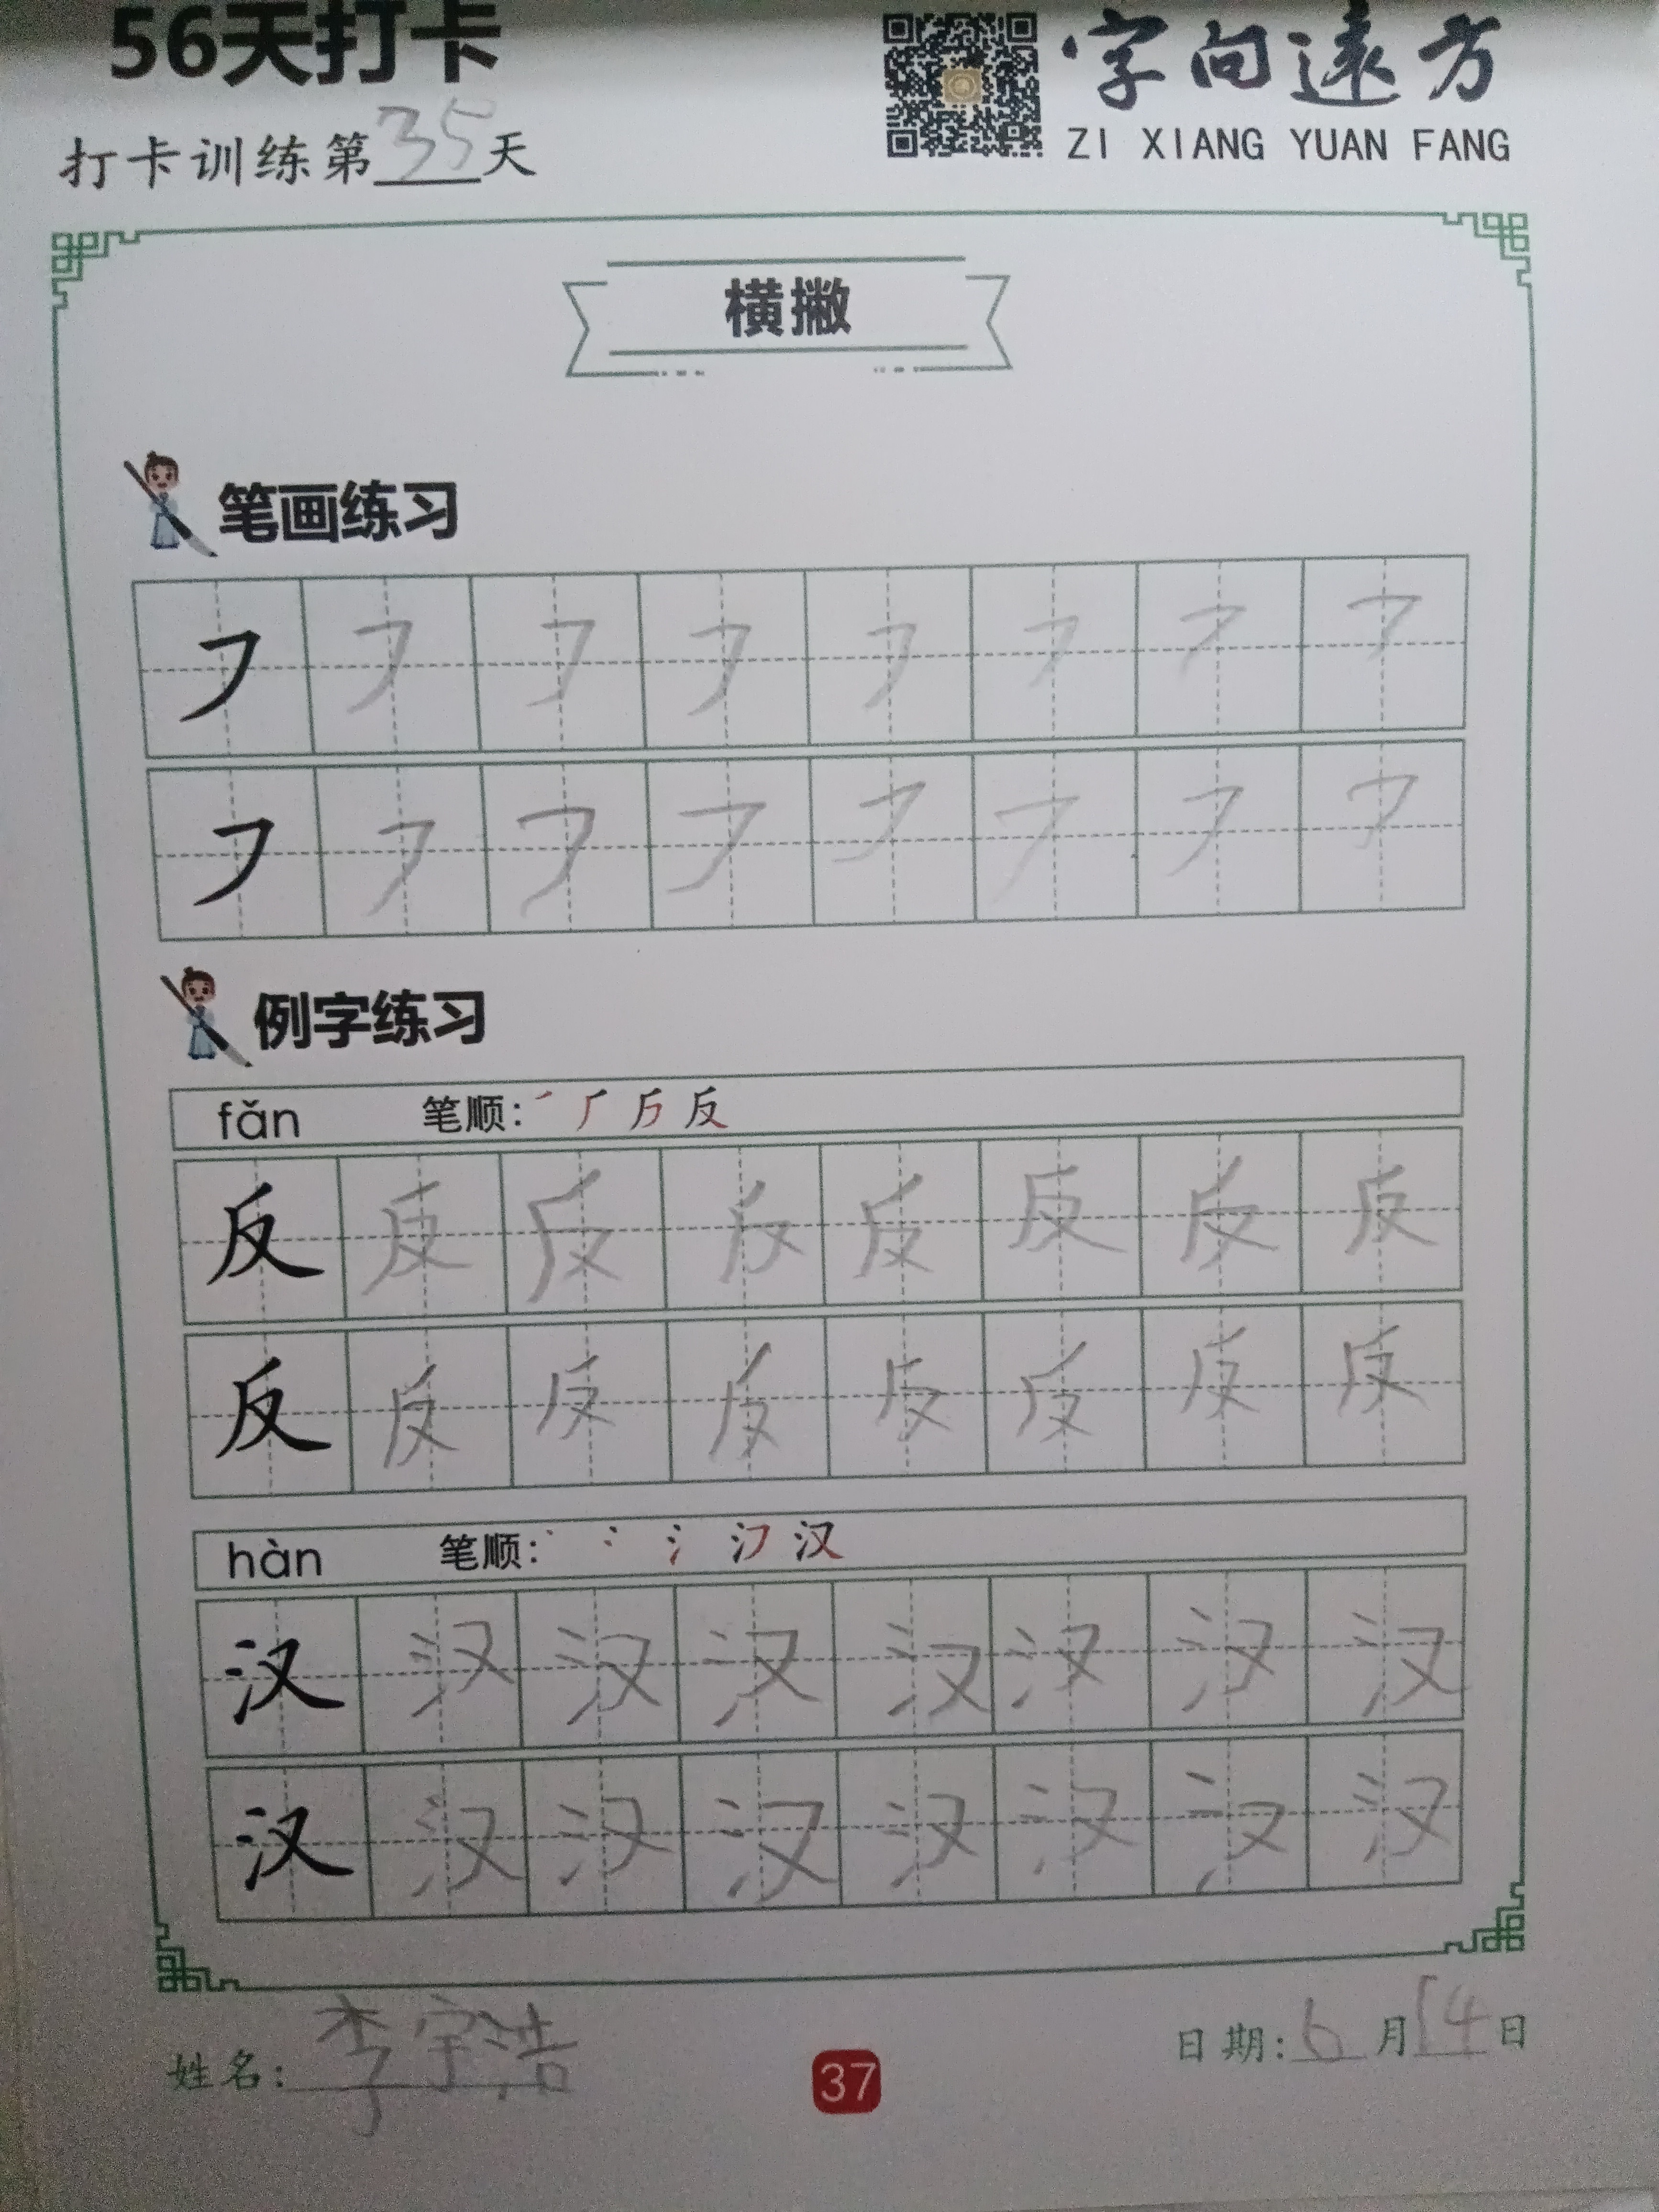 56天打卡
字向遠方
ZI XIANG YUAN FANG
打卡训练第35天
横撇
笔画练习
㇇ ㇇ ㇇ ㇇ ㇇ ㇇ ㇇ ㇇
㇇ ㇇ ㇇ ㇇ ㇇ ㇇ ㇇ ㇇
例字练习
fǎn 笔顺: 反
反 反 反 反 反 反 反 反
反 反 反 反 反 反 反 反
hàn 笔顺: 汉
汉 汉 汉 汉 汉 汉 汉 汉
汉 汉 汉 汉 汉 汉 汉 汉
姓名: 李宇浩
37
日期: 6月14日